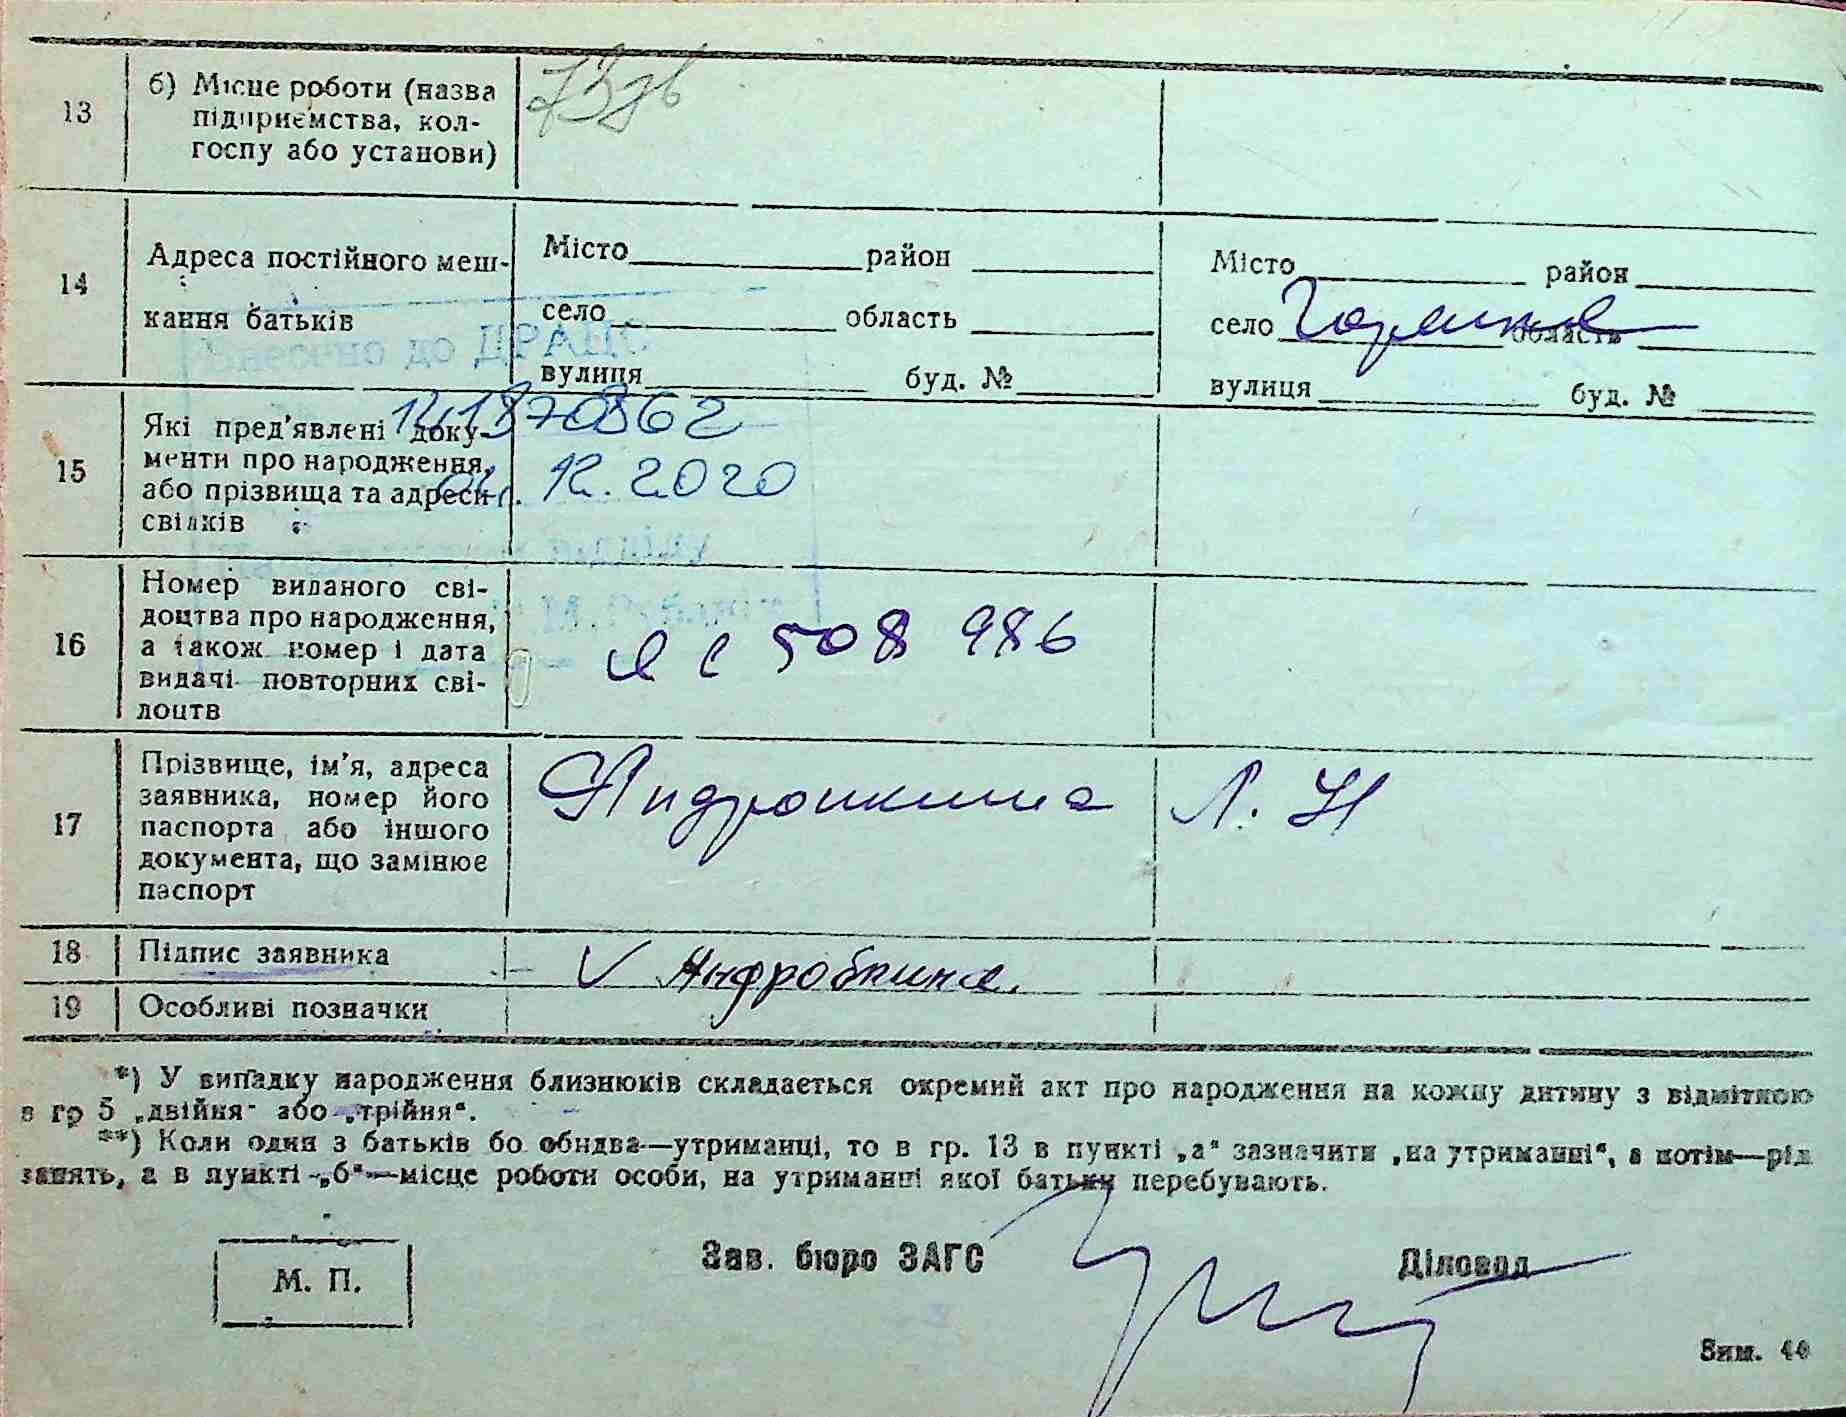 13
б) Місце роботи (назва
підприємства, кол-
госпу або установи)
14
Адреса постійного меш-
кання батьків
Місто район
село область
вулиця буд. №
Місто район
село область
вулиця буд. №
Внесено до ДРАЦС
15
Які пред'явлені доку-
менти про народження,
або прізвища та адреси
свідків
12.2020
16
Номер виданого сві-
доцтва про народження,
а також номер і дата
видачі повторних сві-
доцтв
ЯС 508 986
17
Прізвище, ім'я, адреса
заявника, номер його
паспорта або іншого
документа, що замінює
паспорт
Л. Н
18
Підпис заявника
19
Особливі позначки
*) У випадку народження близнюків складається окремий акт про народження на кожну дитину з відміткою
в гр 5 „двійня“ або „трійня“.
**) Коли один з батьків бо обидва—утриманці, то в гр. 13 в пункті „а“ зазначити „на утриманні“, а потім—рід
занять, а в пункті „б“—місце роботи особи, на утриманні якої батьки перебувають.
М. П.
Зав. бюро ЗАГС
Діловод
Зим. 40